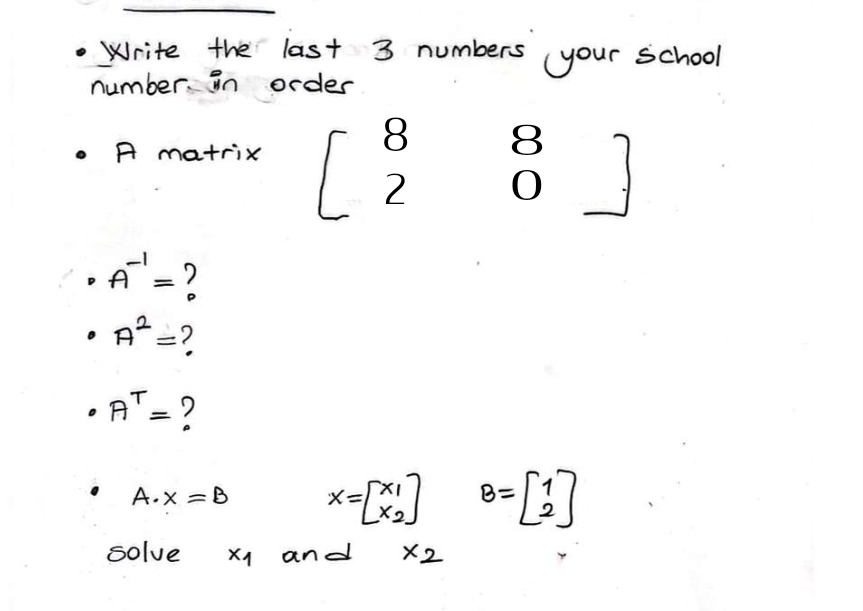 • Write the last 3 numbers your school
number in order
• A matrix [ 8 8
2 0 ]
• A⁻¹ = ?
• A² = ?
• Aᵀ = ?
• A.x = B x = [x1 B = [1
x2] 2]
solve x1 and x2